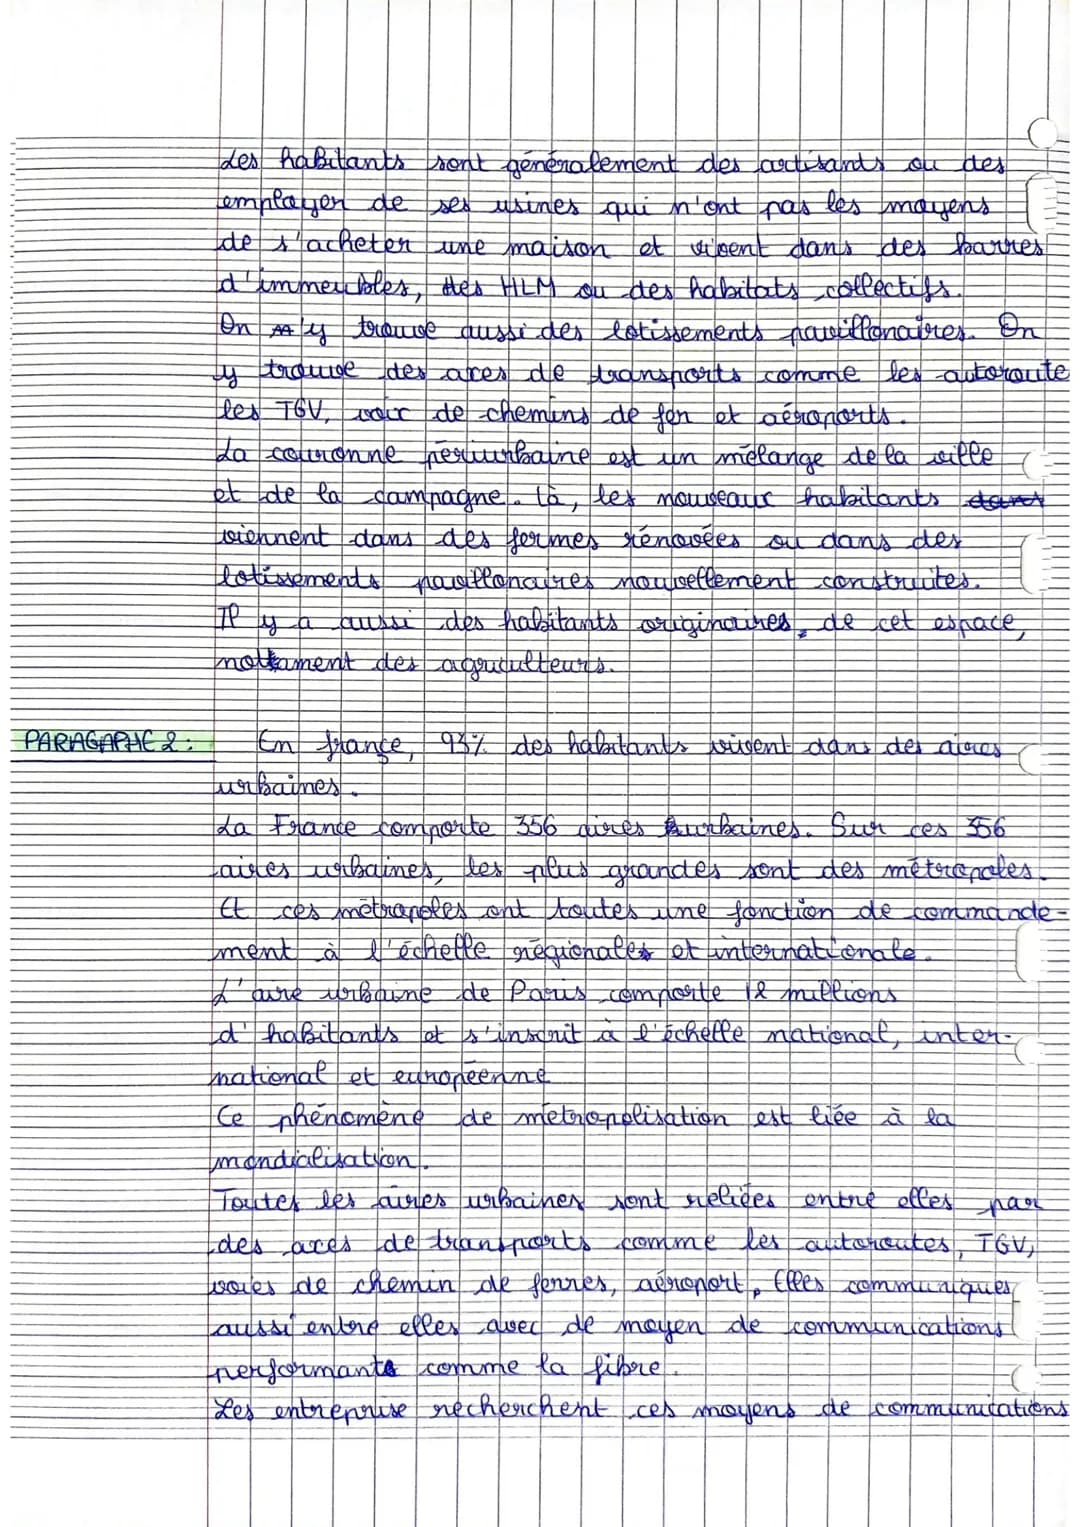 Les habitants sont généralement des artisants ou des
employer de ses usines qui n'ont pas les moyens
de s'acheter une maison et vivent dans des barres
d'immeubles, des HLM ou des habitats collectifs.
On n'y trouve aussi des lotissements pavillonaires. On
y trouve des axes de transports comme les autoroute
les TGV, voir de chemins de fer et aéroports.
La couronne périurbaine est un mélange de la ville
et de la campagne. Là, les nouveaux habitants dans
viennent dans des fermes rénovées ou dans des
lotissements pavillonaires nouvellement construites.
Il y a aussi des habitants originaires, de cet espace,
nottament des agriculteurs.
PARAGAPHE 2 : En france, 93% des habitants vivent dans des aires
urbaines.
La France comporte 356 aires urbaines. Sur ces 356
aires urbaines, les plus grandes sont des métropoles.
Et ces métropoles ont toutes une fonction de commande-
ment à l'échelle régionales et internationale.
L'aire urbaine de Paris comporte 12 millions
d'habitants et s'inscrit à l'échelle national, inter-
national et européenne
Ce phénomène de métropolisation est liée à la
mondialisation.
Toutes les aires urbaines sont reliées entre elles par
des axes de transports comme les autoroutes, TGV,
voies de chemin de ferres, aéroport, Elles communiques
aussi entre elles avec de moyen de communications
performants comme la fibre.
Les entreprise recherchent ces moyens de communications